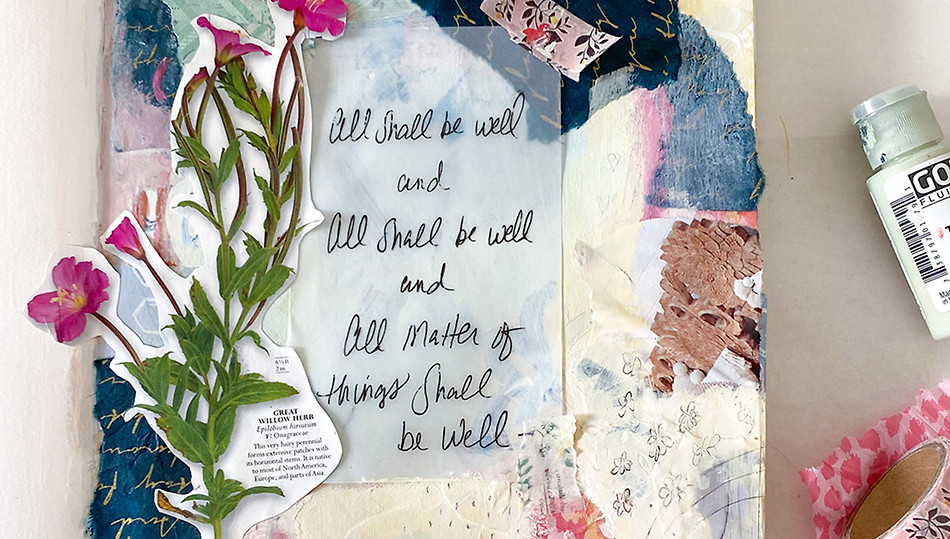 All shall be well
and
All shall be well
and
All Matter of
things Shall
be well
6½ft
2m
GREAT
WILLOW HERB
Epilobium hirsutum
F: Onagraceae
This very hairy perennial
forms extensive patches with
its horizontal stems. It is native
to most of North America,
Europe, and parts of Asia.
GO
FLUI